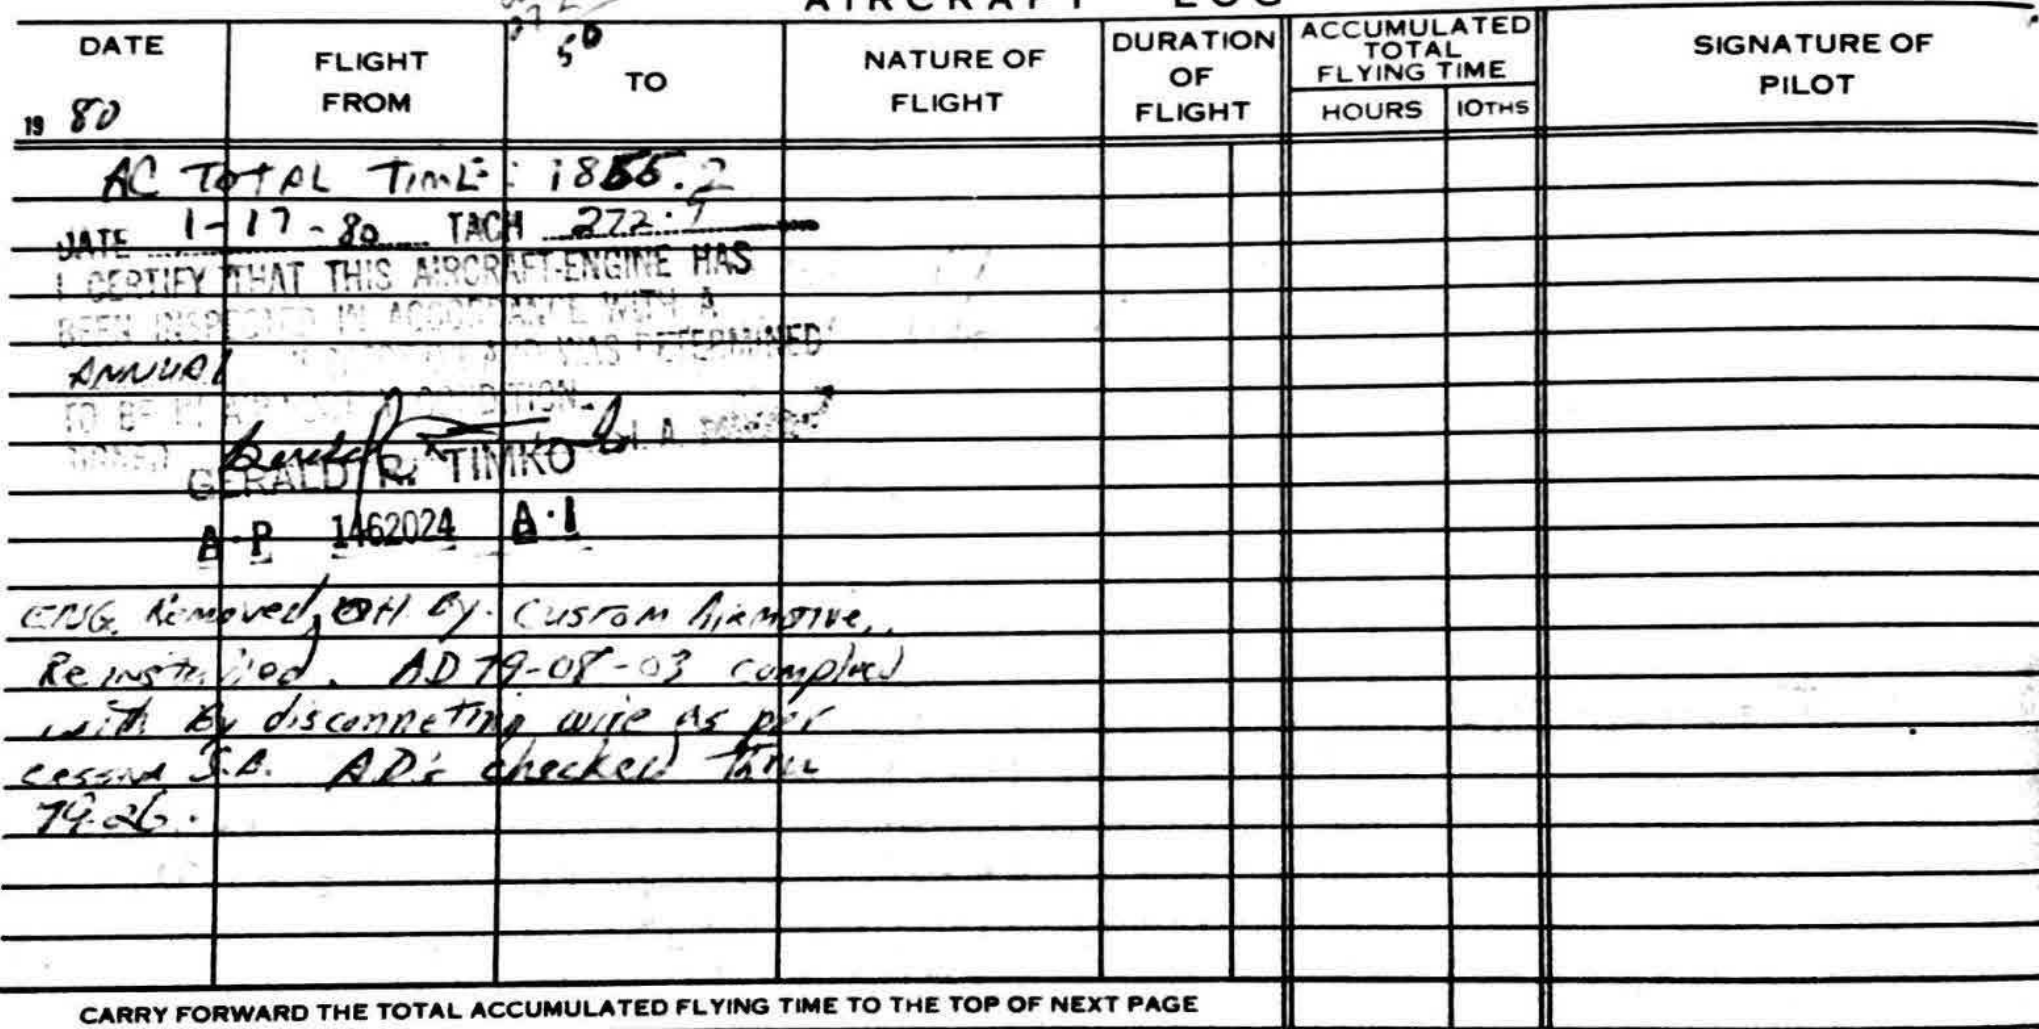 AIRCRAFT LOG
DATE
19 80
FLIGHT FROM
50
TO
NATURE OF FLIGHT
DURATION OF FLIGHT
ACCUMULATED TOTAL FLYING TIME
HOURS 10THS
SIGNATURE OF PILOT
AC TOTAL TIME: 1855.2
DATE 1-17-80 TACH 272.7
I CERTIFY THAT THIS AIRCRAFT-ENGINE HAS
BEEN INSPECTED IN ACCORDANCE WITH A
ANNUAL AND WAS DETERMINED
TO BE IN CONDITION.
SIGNED I.A.
GERALD R. TIMKO
A·P 1462024 A·I
ENG. Removed, OH. By. Custom Airmotive,
Reinstalled. AD 79-08-03 complied
with By disconneting wire as per
cessna S.B. AD's checked Thru
79-26.
CARRY FORWARD THE TOTAL ACCUMULATED FLYING TIME TO THE TOP OF NEXT PAGE